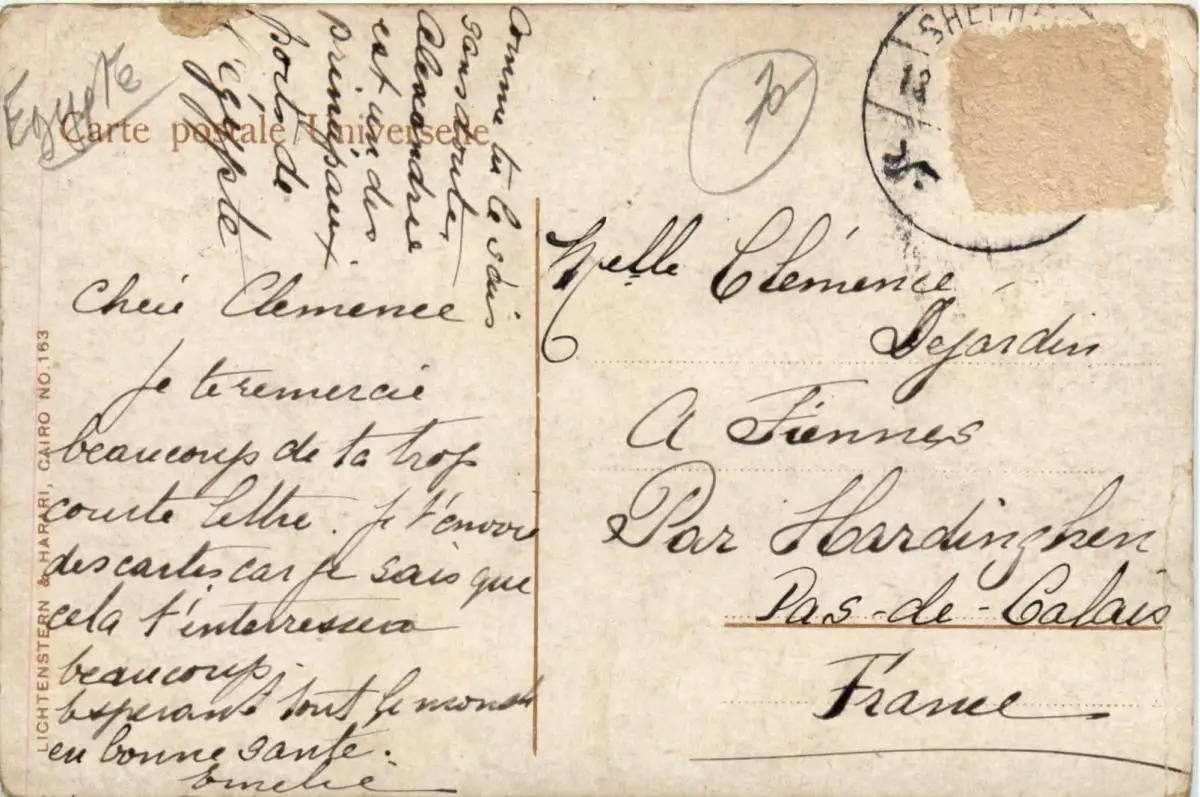 Egypte
Carte postale Universelle
70
SHEPH
Comme tu le sais
sans doute,
Alexandrie
est un des
prinipaux
ports de
l'égypte
Chère Clemence
Je te remercie
beaucoup de ta trop
courte lettre. Je t'envoie
des cartes car je sais que
cela t'interressera
beaucoup.
Esperant tout le monde
en bonne santé.
Emelie
Melle Clémence
Dejardin
A Fiennes
Par Hardinghen
Pas-de-Calais
France
LICHTENSTERN & HARARI, CAIRO NO. 163